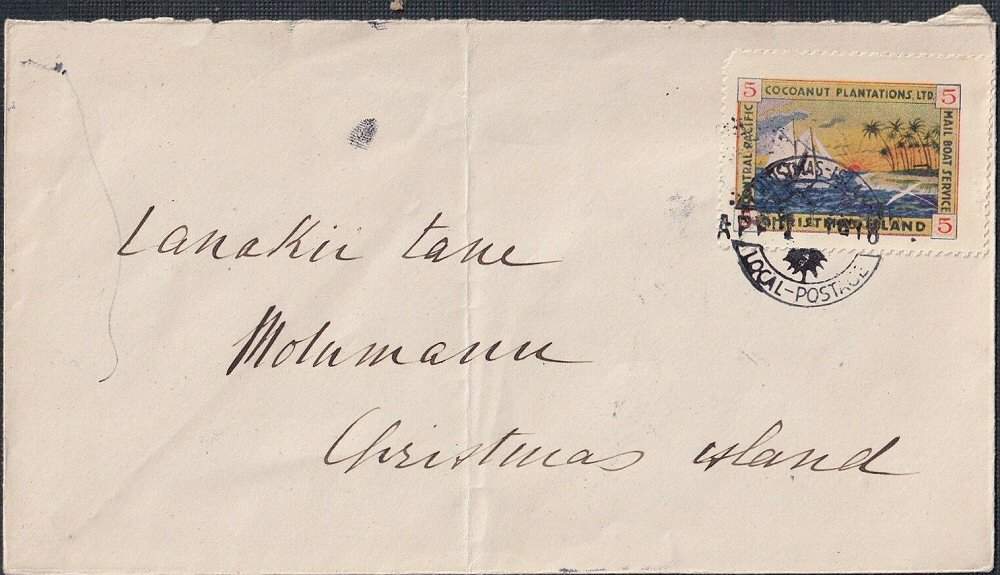 5 COCOANUT PLANTATIONS, LTD. 5
CENTRAL PACIFIC
MAIL BOAT SERVICE
CHRISTMAS ISLAND 5
CHRISTMAS-ISLAND
1918
LOCAL-POSTAGE
Lanakii tane
Motumanu
Christmas island